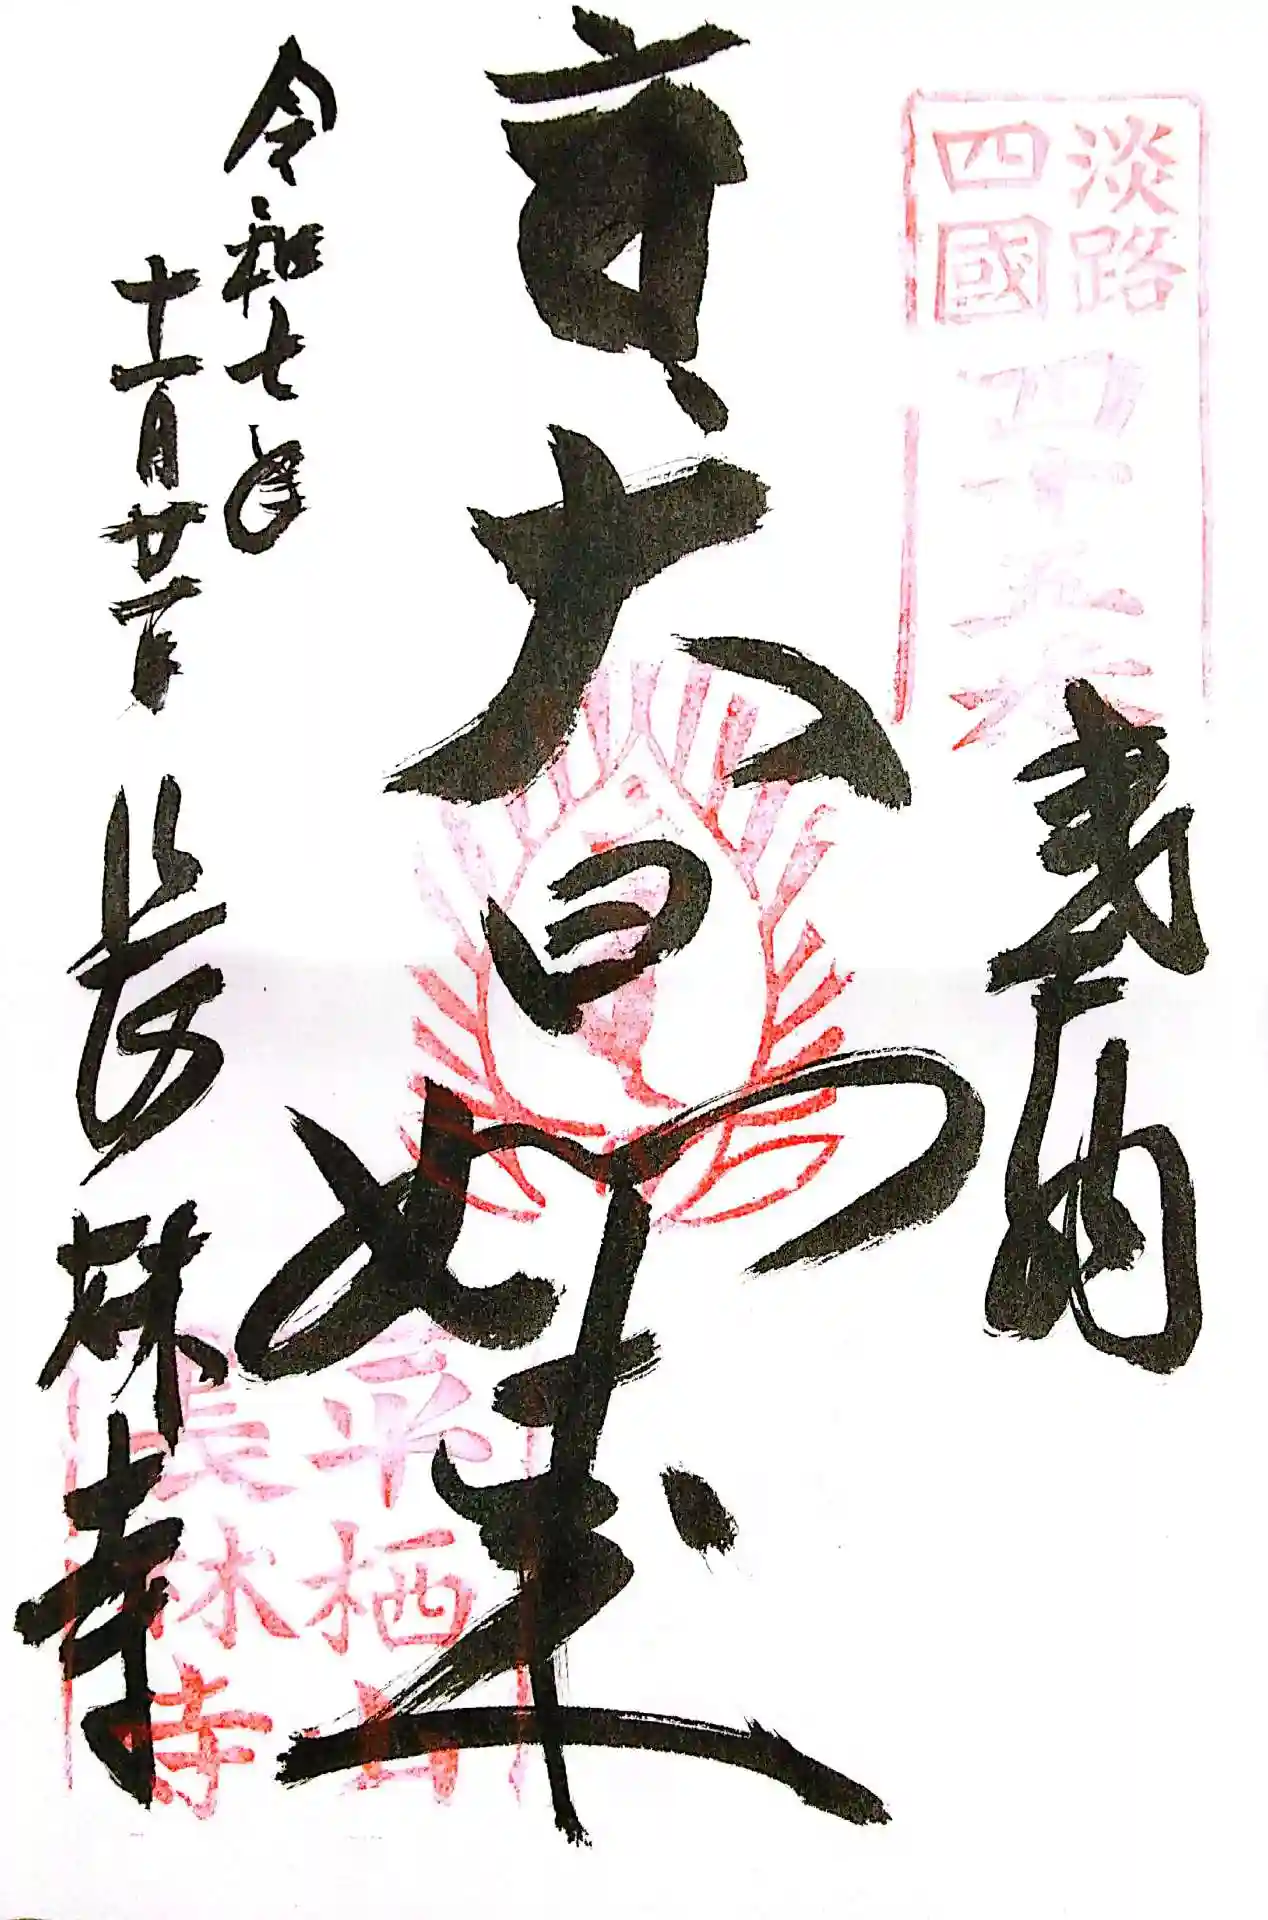 淡路
四國
四十五番
奉納
大日如来
令和七年
十一月廿一日
長林寺
平栖山
長林寺